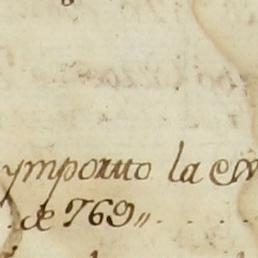 ymporuto la em
de 769,,. . . .